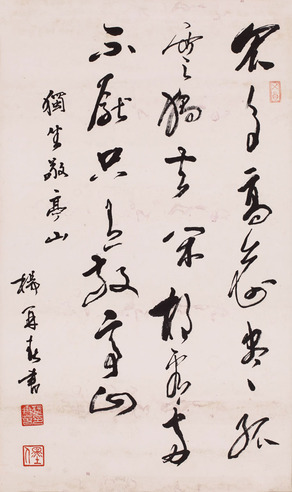 衆鳥高飛盡孤
雲獨去閑相看兩
不厭只有敬亭山
獨坐敬亭山
楊再春書